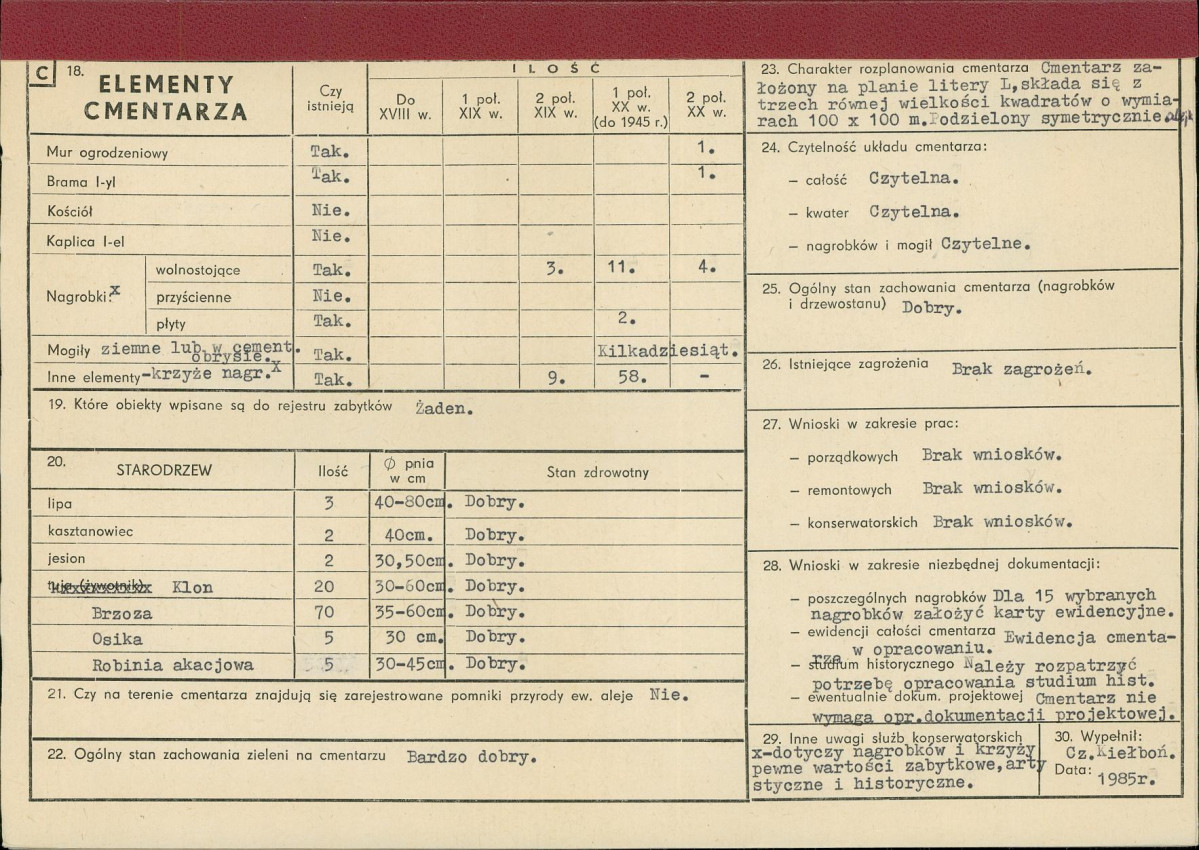 C 18. ELEMENTY CMENTARZA
Czy istnieją
ILOŚĆ
Do XVIII w.
1 poł. XIX w.
2 poł. XIX w.
1 poł. XX w. (do 1945 r.)
2 poł. XX w.
Mur ogrodzeniowy Tak. 1.
Brama I-yl Tak. 1.
Kościół Nie.
Kaplica I-el Nie.
Nagrobki:x
wolnostojące Tak. 3. 11. 4.
przyścienne Nie.
płyty Tak. 2.
Mogiły ziemne lub w cement. obrysie.x Tak. Kilkadziesiąt.
Inne elementy-krzyże nagr.x Tak. 9. 58. -
19. Które obiekty wpisane są do rejestru zabytków Żaden.
20. STARODRZEW Ilość Ø pnia w cm Stan zdrowotny
lipa 3 40-80cm. Dobry.
kasztanowiec 2 40cm. Dobry.
jesion 2 30,50cm. Dobry.
tuja (żywotnik) Klon 20 30-60cm. Dobry.
Brzoza 70 35-60cm. Dobry.
Osika 5 30 cm. Dobry.
Robinia akacjowa 5 30-45cm. Dobry.
21. Czy na terenie cmentarza znajdują się zarejestrowane pomniki przyrody ew. aleje Nie.
22. Ogólny stan zachowania zieleni na cmentarzu Bardzo dobry.
23. Charakter rozplanowania cmentarza Cmentarz za-
łożony na planie litery L,składa się z
trzech równej wielkości kwadratów o wymia-
rach 100 x 100 m.Podzielony symetrycznie.
24. Czytelność układu cmentarza:
– całość Czytelna.
– kwater Czytelna.
– nagrobków i mogił Czytelne.
25. Ogólny stan zachowania cmentarza (nagrobków
i drzewostanu) Dobry.
26. Istniejące zagrożenia Brak zagrożeń.
27. Wnioski w zakresie prac:
– porządkowych Brak wniosków.
– remontowych Brak wniosków.
– konserwatorskich Brak wniosków.
28. Wnioski w zakresie niezbędnej dokumentacji:
– poszczególnych nagrobków Dla 15 wybranych
nagrobków założyć karty ewidencyjne.
– ewidencji całości cmentarza Ewidencja cmenta-
rza w opracowaniu.
– studium historycznego Należy rozpatrzyć
potrzebę opracowania studium hist.
– ewentualnie dokum. projektowej Cmentarz nie
wymaga opr.dokumentacji projektowej.
29. Inne uwagi służb konserwatorskich
x-dotyczy nagrobków i krzyży
pewne wartości zabytkowe,arty
styczne i historyczne.
30. Wypełnił:
Cz.Kiełboń.
Data: 1985r.